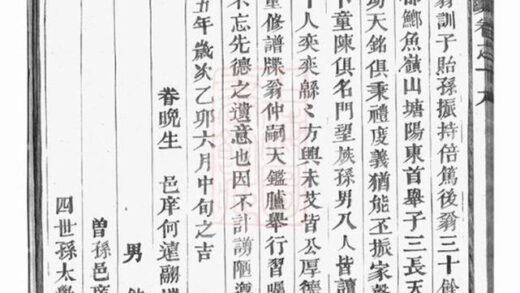 翁訓子貽孫振持倍篤後翁三十餘
都鄉魚嶺山塘陽東首舉子三長天
助天銘俱秉禮度義猶能丕振家聲
童陳俱名門望族孫男八人皆讀
十人奕奕緜〻方興未艾皆公厚德
重修譜牒翁仲嗣天鑑臚舉行習囑
不忘先德之遺意也因不計謭陋
五年歲次乙卯六月中旬之吉
眷晚生 邑庠何遠翮
男
曾孫邑庠
四世孫太